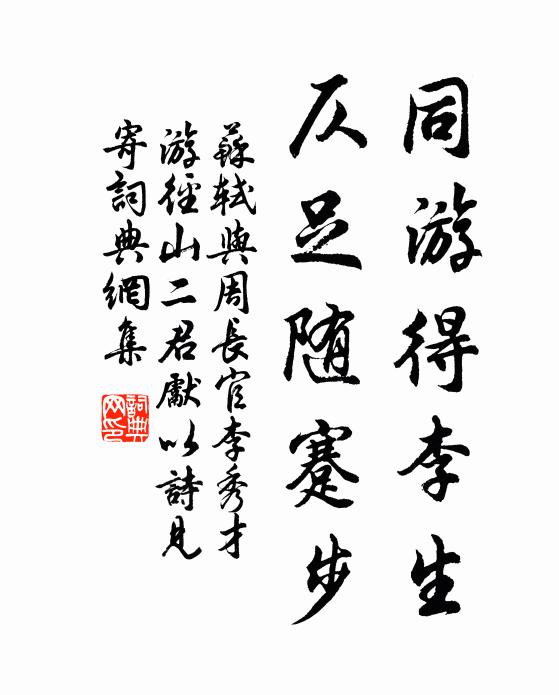 同游得李生
仄足随蹇步
蘇軾與周長官李秀才
游徑山二君獻以詩見
寄詞典網集
詞典
网印